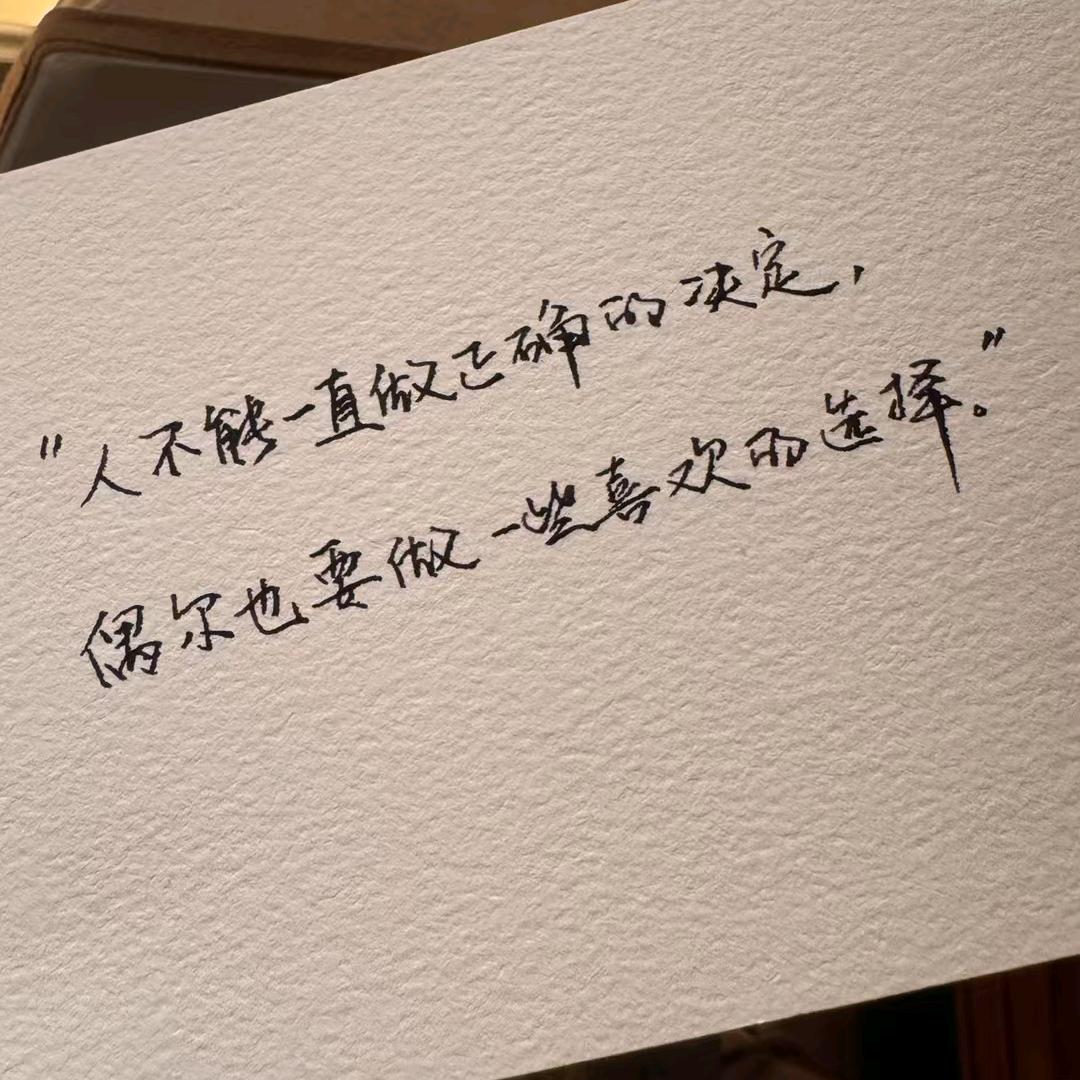 “人不能一直做正确的决定,
偶尔也要做一些喜欢的选择。”